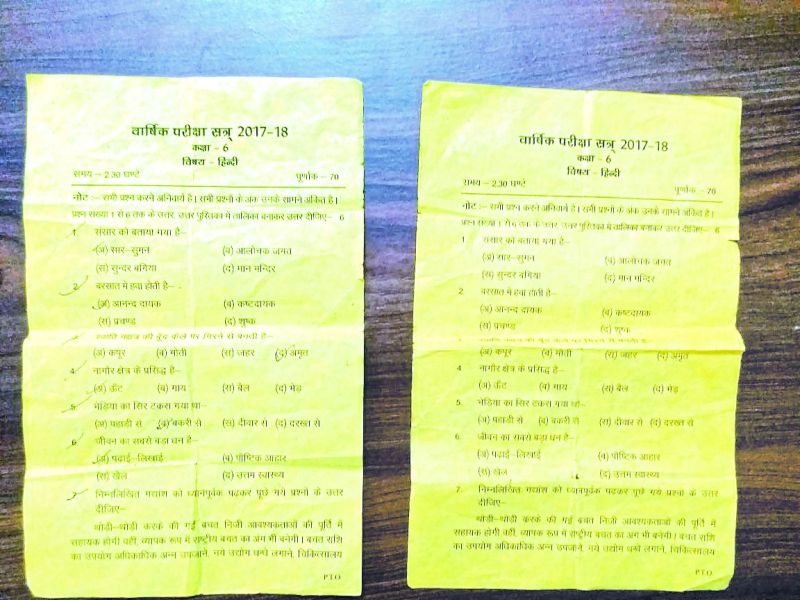 वार्षिक परीक्षा सत्र् 2017-18
कक्षा - 6
विषय - हिन्दी
समय - 2.30 घण्टे पूर्णांक - 70
नोट :- सभी प्रश्न करने अनिवार्य है। सभी प्रश्नों के अंक उनके सामने अंकित है।
प्रश्न संख्या 1 से 6 तक के उत्तर, उत्तर पुस्तिका में तालिका बनाकर उत्तर दीजिए- 6
1. संसार को बताया गया है-
(अ) सार-सुमन (ब) आलोचक जगत
(स) सुन्दर बगिया (द) मान मन्दिर
2. बरसात में हवा होती है-
(अ) आनन्द दायक (ब) कष्टदायक
(स) प्रचण्ड (द) शुष्क
3. स्वाति नक्षत्र की बूँद केले पर गिरने से बनती है-
(अ) कपूर (ब) मोती (स) जहर (द) अमृत
4. नागौर क्षेत्र के प्रसिद्ध है-
(अ) ऊँट (ब) गाय (स) बैल (द) भेड़
5. भेडिया का सिर टकरा गया था-
(अ) पहाडी से (ब) बकरी से (स) दीवार से (द) दरख्त से
6. जीवन का सबसे बड़ा धन है-
(अ) पढाई-लिखाई (ब) पौष्टिक आहार
(स) खेल (द) उत्तम स्वास्थ्य
7. निम्नलिखित गद्यांश को ध्यानपूर्वक पढ़कर पूछे गये प्रश्नों के उत्तर
दीजिए-
थोडी-थोडी करके की गई बचत निजी आवश्यकताओं की पूर्ति में
सहायक होगी वहीं, व्यापक रूप में राष्ट्रीय बचत का अंग भी बनेगी। बचत राशि
का उपयोग अधिकाधिक अन्न उपजाने, नये उद्योग धन्धे लगाने, चिकित्सालय
P.T.O.
वार्षिक परीक्षा सत्र् 2017-18
कक्षा - 6
विषय - हिन्दी
समय - 2.30 घण्टे पूर्णांक - 70
नोट :- सभी प्रश्न करने अनिवार्य है। सभी प्रश्नों के अंक उनके सामने अंकित है।
प्रश्न संख्या 1 से 6 तक के उत्तर, उत्तर पुस्तिका में तालिका बनाकर उत्तर दीजिए- 6
1. संसार को बताया गया है-
(अ) सार-सुमन (ब) आलोचक जगत
(स) सुन्दर बगिया (द) मान मन्दिर
2. बरसात में हवा होती है-
(अ) आनन्द दायक (ब) कष्टदायक
(स) प्रचण्ड (द) शुष्क
(अ) कपूर (ब) मोती (स) जहर (द) अमृत
4. नागौर क्षेत्र के प्रसिद्ध है-
(अ) ऊँट (ब) गाय (स) बैल (द) भेड़
5. भेडिया का सिर टकरा गया था-
(अ) पहाडी से (ब) बकरी से (स) दीवार से (द) दरख्त से
6. जीवन का सबसे बड़ा धन है-
(अ) पढाई-लिखाई (ब) पौष्टिक आहार
(स) खेल (द) उत्तम स्वास्थ्य
7. निम्नलिखित गद्यांश को ध्यानपूर्वक पढ़कर पूछे गये प्रश्नों के उत्तर
दीजिए-
थोडी-थोडी करके की गई बचत निजी आवश्यकताओं की पूर्ति में
सहायक होगी वहीं, व्यापक रूप में राष्ट्रीय बचत का अंग भी बनेगी। बचत राशि
का उपयोग अधिकाधिक अन्न उपजाने, नये उद्योग धन्धे लगाने, चिकित्सालय
P.T.O.